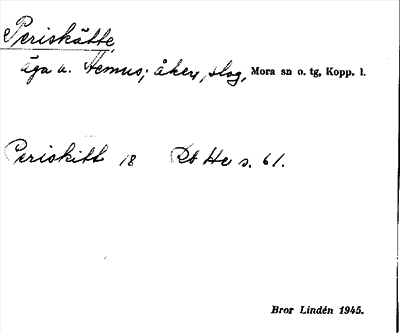 Periskätte,
äga u. Hemus; åker, slog, Mora sn o. tg, Kopp. l.
Periskitt 18 Rt He s. 61.
Bror Lindén 1945.